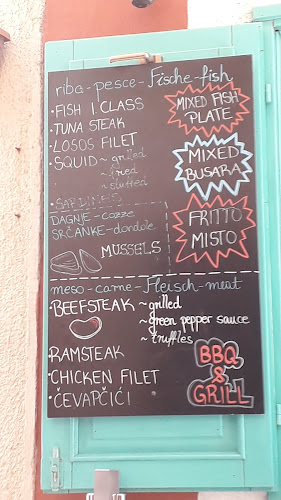 riba-pesce-Fische-fish
• FISH I CLASS
• TUNA STEAK
• LOSOS FILET
• SQUID ~ grilled
~ fried
~ stuffed
• SARDINES
DAGNJE-cozze
SRČANKE-dondole
MUSSELS
MIXED FISH
PLATE
MIXED
BUSARA
FRITTO
MISTO
meso-carne-Fleisch-meat
• BEEFSTEAK ~ grilled
~ green pepper sauce
~ truffles
RAMSTEAK
• CHICKEN FILET
• ČEVAPČIĆI
BBQ
&
GRILL